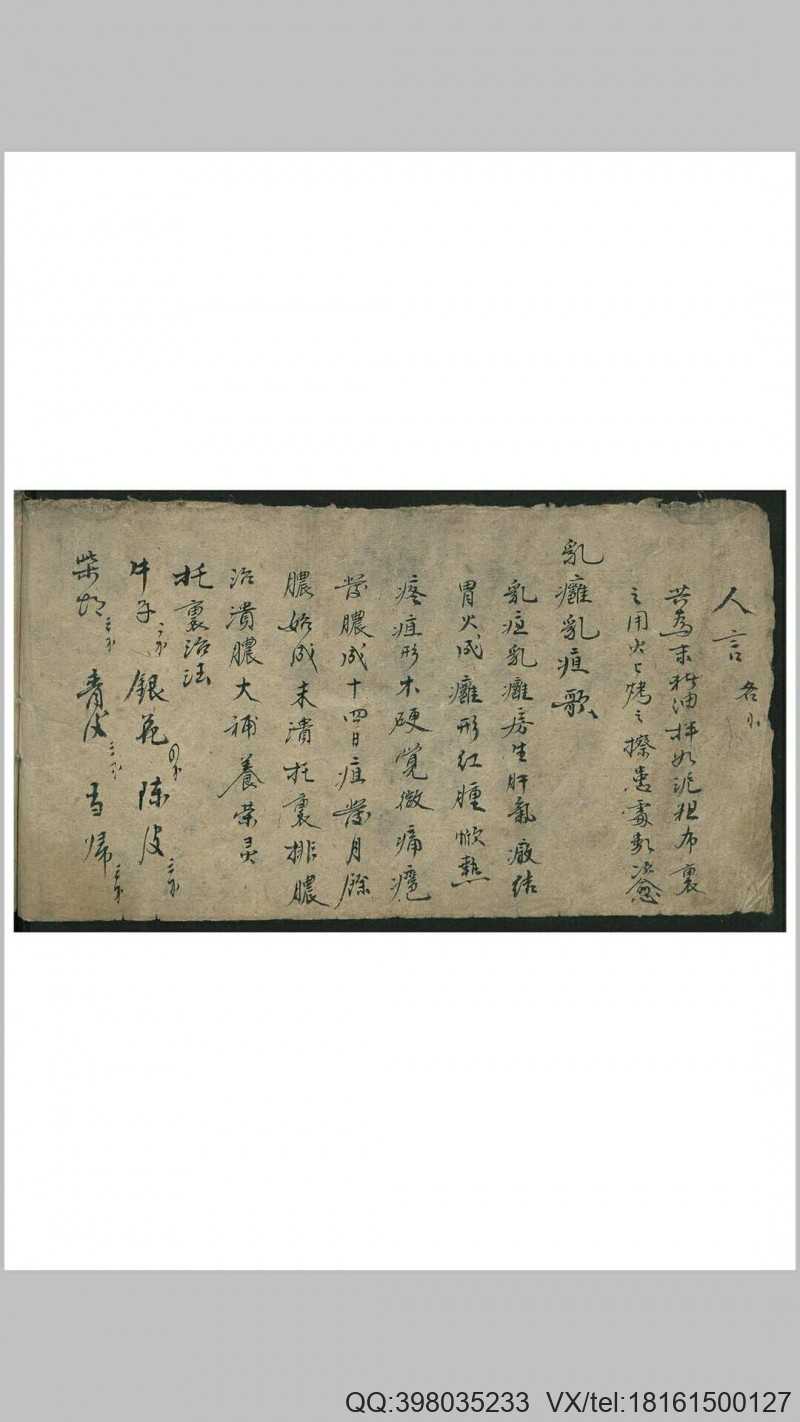 人言 各
共為末 油拌如泥粗布裏
之用火上烤之擦患處即愈
乳癰乳疽歌
乳疽乳癰房生肝氣凝結
胃火成癰形紅腫焮熱
疼疽形木硬覺微痛癰
發膿成十四日疽發月餘
膿始成未潰托裏排膿
治潰膿大補養荣灵
托裏治法
牛子 銀花 陳皮
柴胡 青皮 当帰
QQ:398035233 VX/tel:18161500127